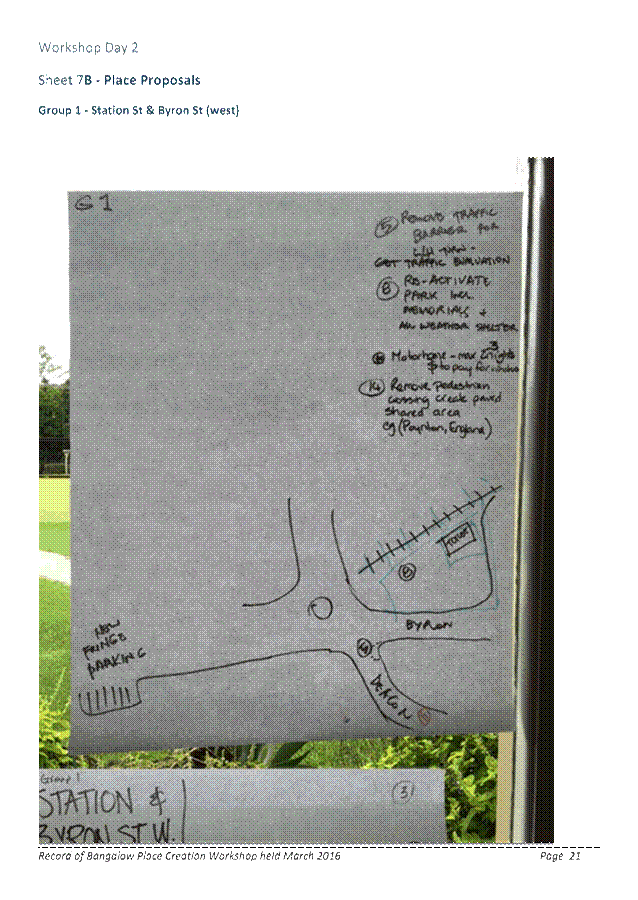 Workshop Day 2
Sheet 7B - Place Proposals
Group 1 - Station St & Byron St (west)
G1
5 REMOVE TRAFFIC
BARRIER FOR
TURN -
GET TRAFFIC EVALUATION
8 RE-ACTIVATE
PARK INCL.
MEMORIALS +
ALL WEATHER SHELTER
Motorhome - max 3 nights
$ to pay for
14 Remove Pedestrian
crossing create paved
shared area
eg (Poynton, England)
TOILET
8
BYRON
NEW
FRINGE
PARKING
14
DEACON
Group 1
STATION &
BYRON ST W.
3
Record of Bangalow Place Creation Workshop held March 2016
Page 21